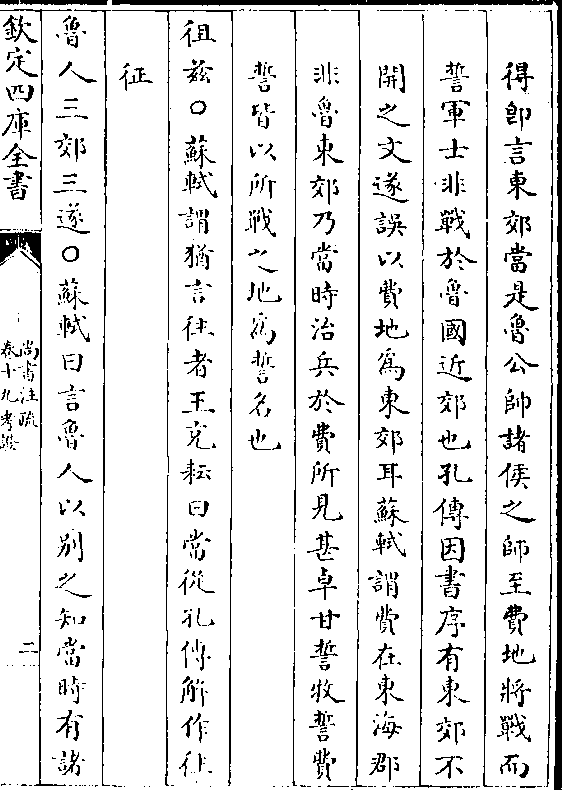 得即言東郊當是魯公帥諸侯之師至費地將戰而
誓軍士非戰於魯國近郊也孔傳因書序有東郊不
開之文遂誤以費地為東郊耳蘇軾謂費在東海郡
非魯東郊乃當時治兵於費所見甚卓甘誓牧誓費
誓皆以所戰之地為誓名也
徂茲○蘇軾謂猶言往者王充耘曰當從孔傳解作往
征
魯人三郊三遂○蘇軾曰言魯人以別之知當時有諸
欽定四庫全書
尚書注疏
卷十九考證
二